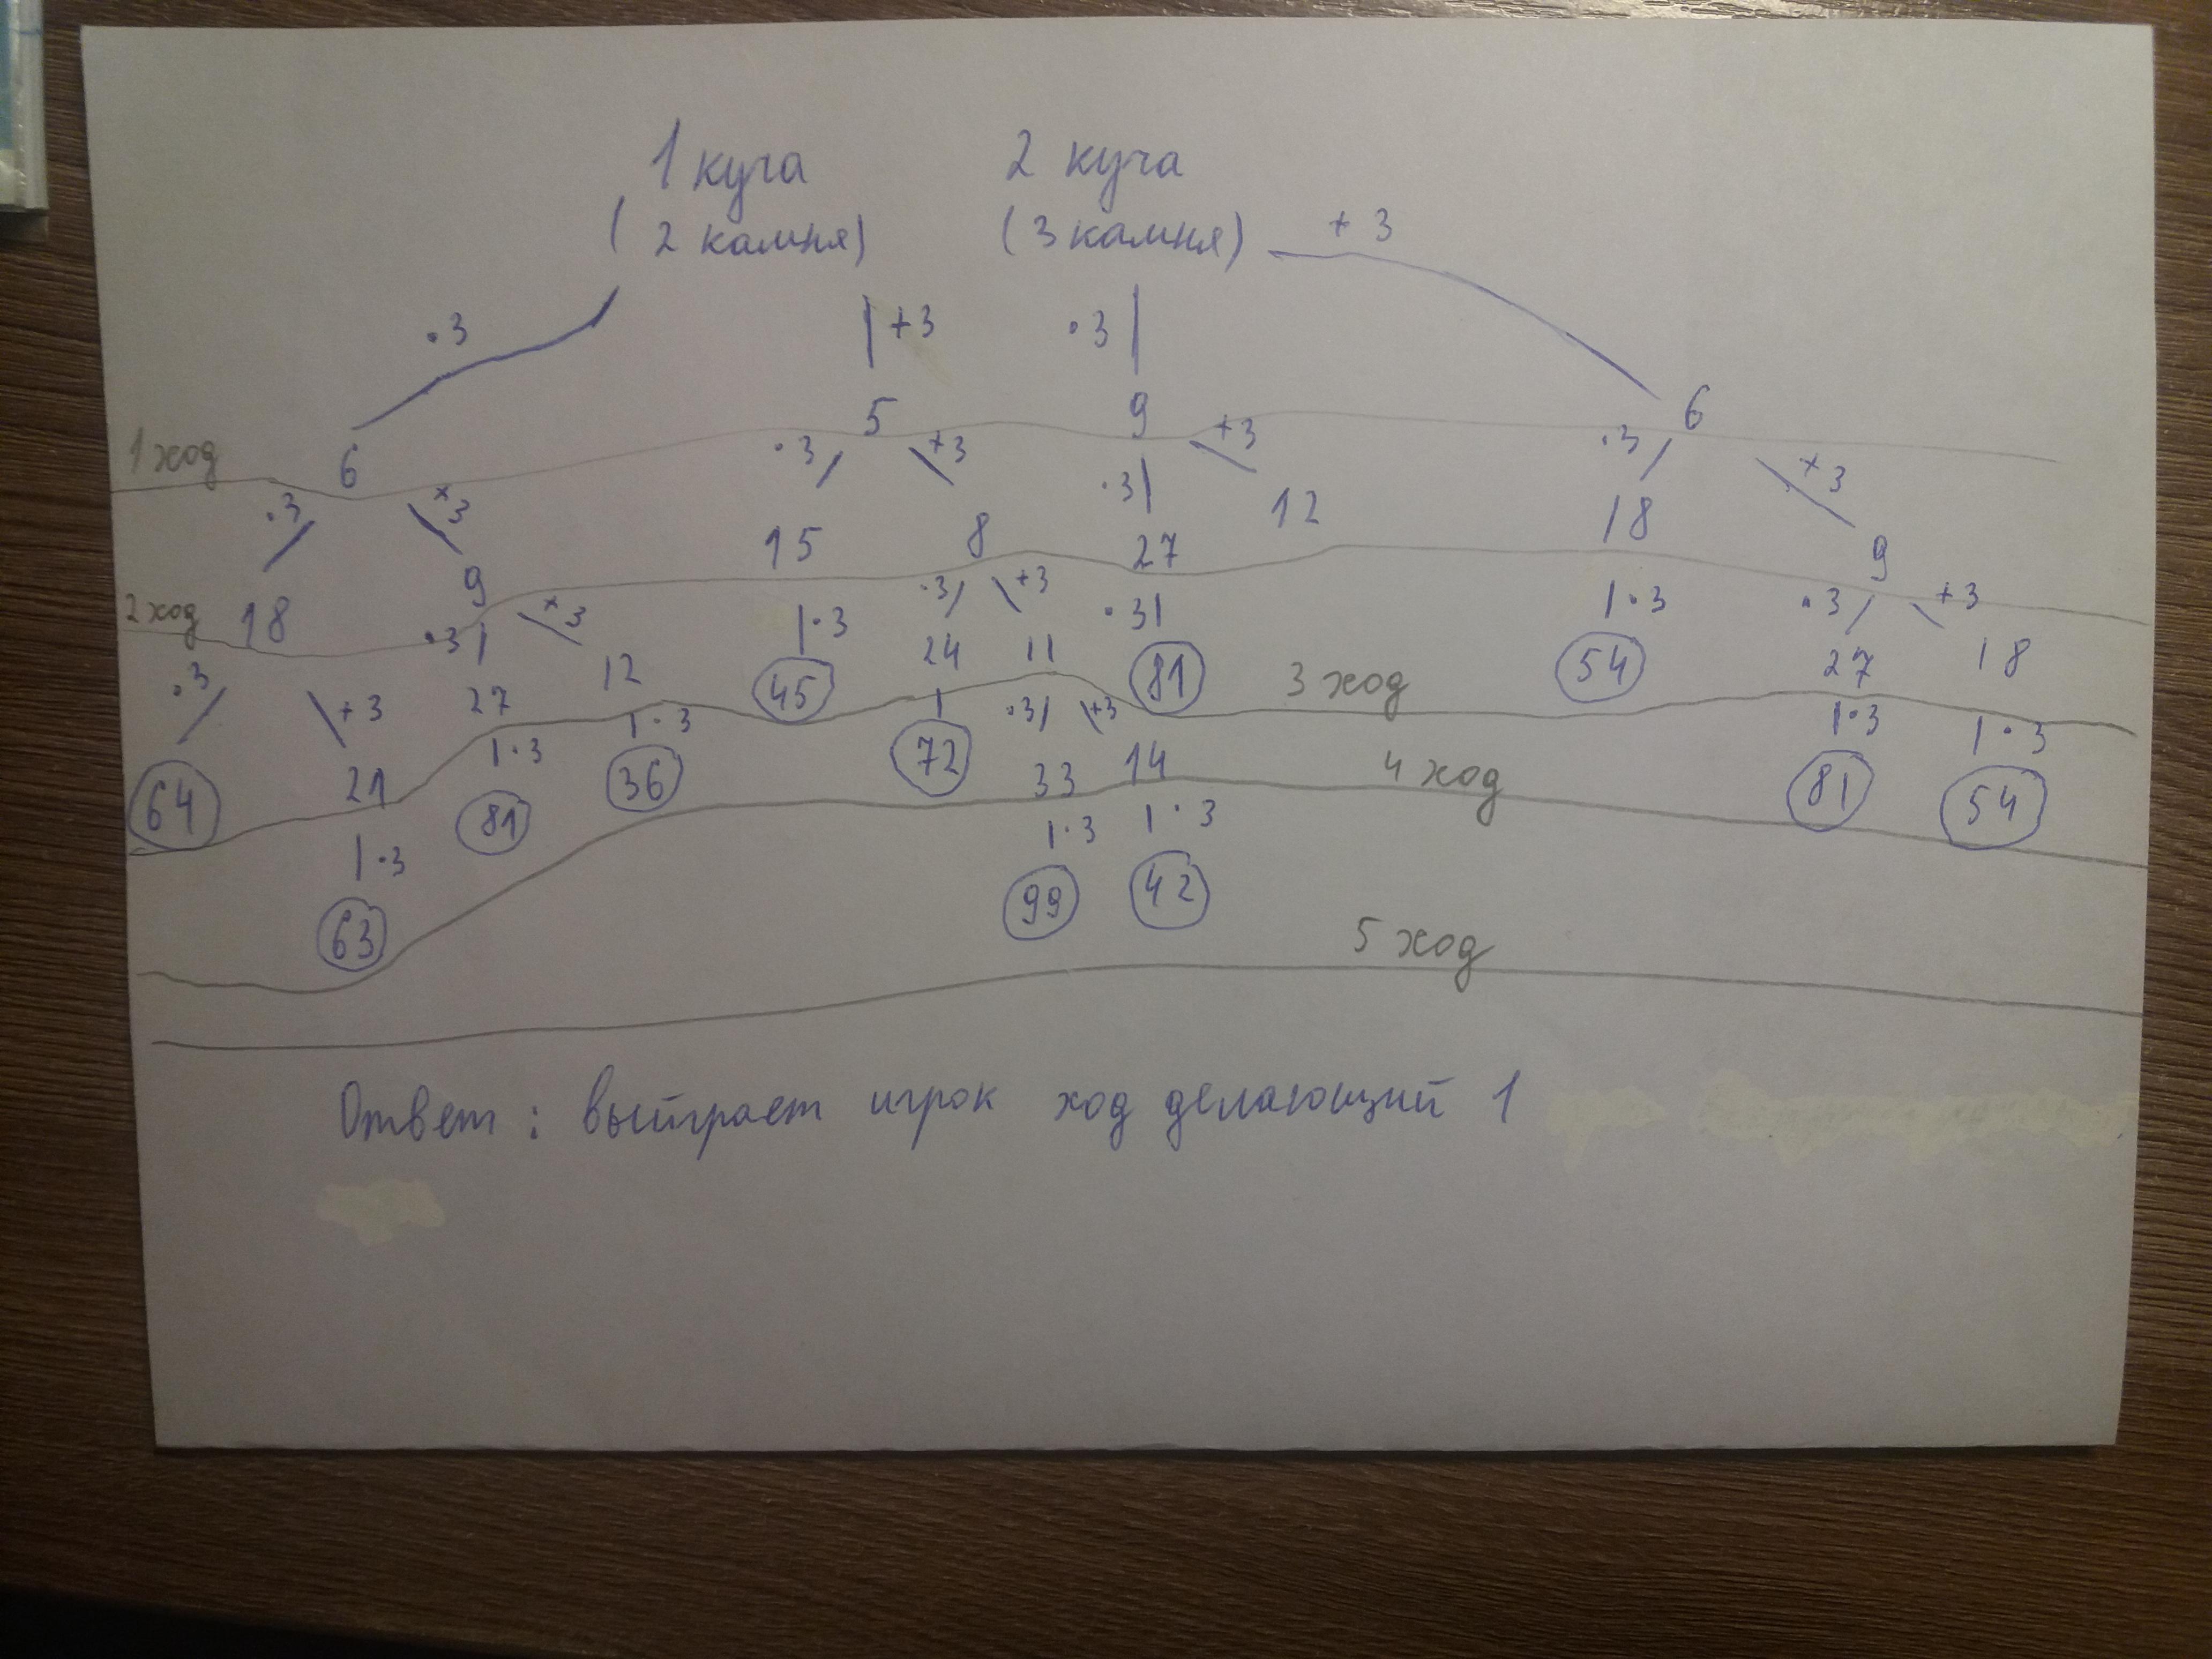 1 куча 2 куча
( 2 камня) ( 3 камня) + 3
· 3 + 3 · 3
1 ход 6 5 9 6
· 3 + 3 · 3 + 3 · 3 + 3 · 3 + 3
15 8 27 12 18 9
2 ход 18 9
· 3 + 3 · 3 + 3 · 3 · 3 + 3 · 3 · 3 · 3 + 3
27 12 45 24 11 81 3 ход 54 27 18
64 21 · 3 · 3 · 3 + 3 · 3 · 3
81 36 72 33 14 4 ход 81 54
· 3 · 3 · 3
63 99 42
5 ход
Ответ : выйграет игрок ход делающий 1